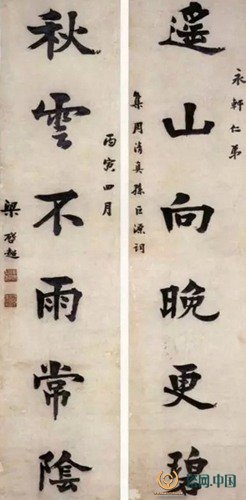 永軒仁弟
遙山向晚更碧
集周清真孫巨源詞
丙寅四月
秋雲不雨常陰
梁啓超